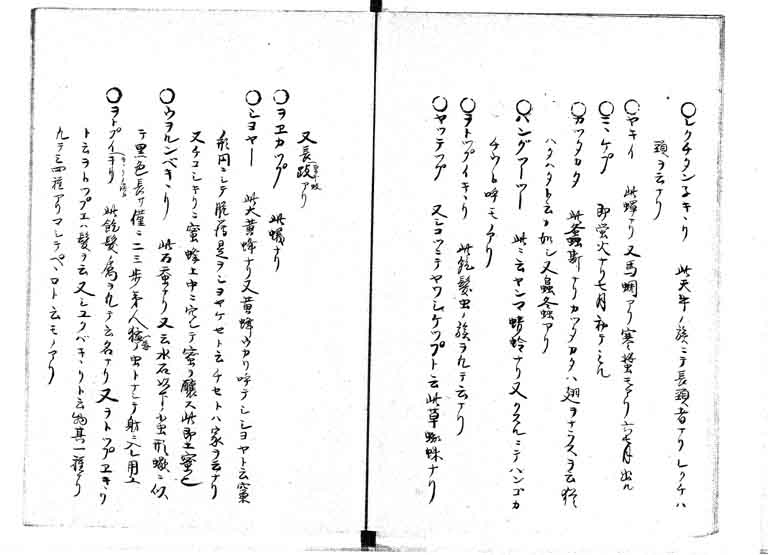 ○レクチタンネキヽリ 此天牛ノ族ニテ長頸者ナリレクチハ
頸ヲ云ナリ
○ヤキイ 此蟬ナリ又馬蜩アリ寒蛩モアリ六七月出ル
○ミンケプ 即螢火ナリ七月
○カツタカタ 此螽斯ナリカツタカタハ翅ヲナラスヲ云
ハタハタト云フ如シ又蟲螽アリ
○ハングアーツー 此ニ云ヤンマ蜻蛉ナリ又クスルニテハンゴカ
チウト呼モノアリ
○ヲトツプイキヽリ 此飽髮虫ノ族ヲ凡テ云ナリ
○ヤツテツプ 又シコツニテヤワシケツプト云此草蜘蛛ナリ
又長跂アリ
○ヲヱカツプ 此蠛ナリ
○シヨヤー 此大黃蜂ナリ又黃蜂ヲカリ呼テシヨヤト云窠
形円ニシテ是ヲシヨヤケセト云チセトハ家ヲ云ナリ
又チコシキリニ蜜蜂土中ニ穴シテ蜜ヲ釀ス此即土蜜也
○ウヲルンベキヽリ 此石蚕ナリ又云水石
テ黑色長サ僅ニ二三步
○ヲトプイキリ 此飽髮ノ屬ヲ凡テ云名ナリ又ヲトツプヱキヽリ
ト云ヲトツプヱハ髮ヲ云又シユクベキヽリト云物其一種ナリ
凡テ三四種アリマシテペヘロト云モノアリ